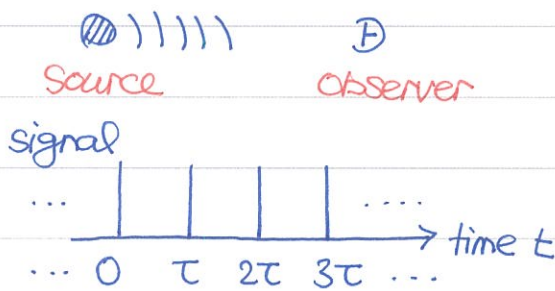 Source Observer
signal
... ....
time t
... 0 τ 2τ 3τ ...